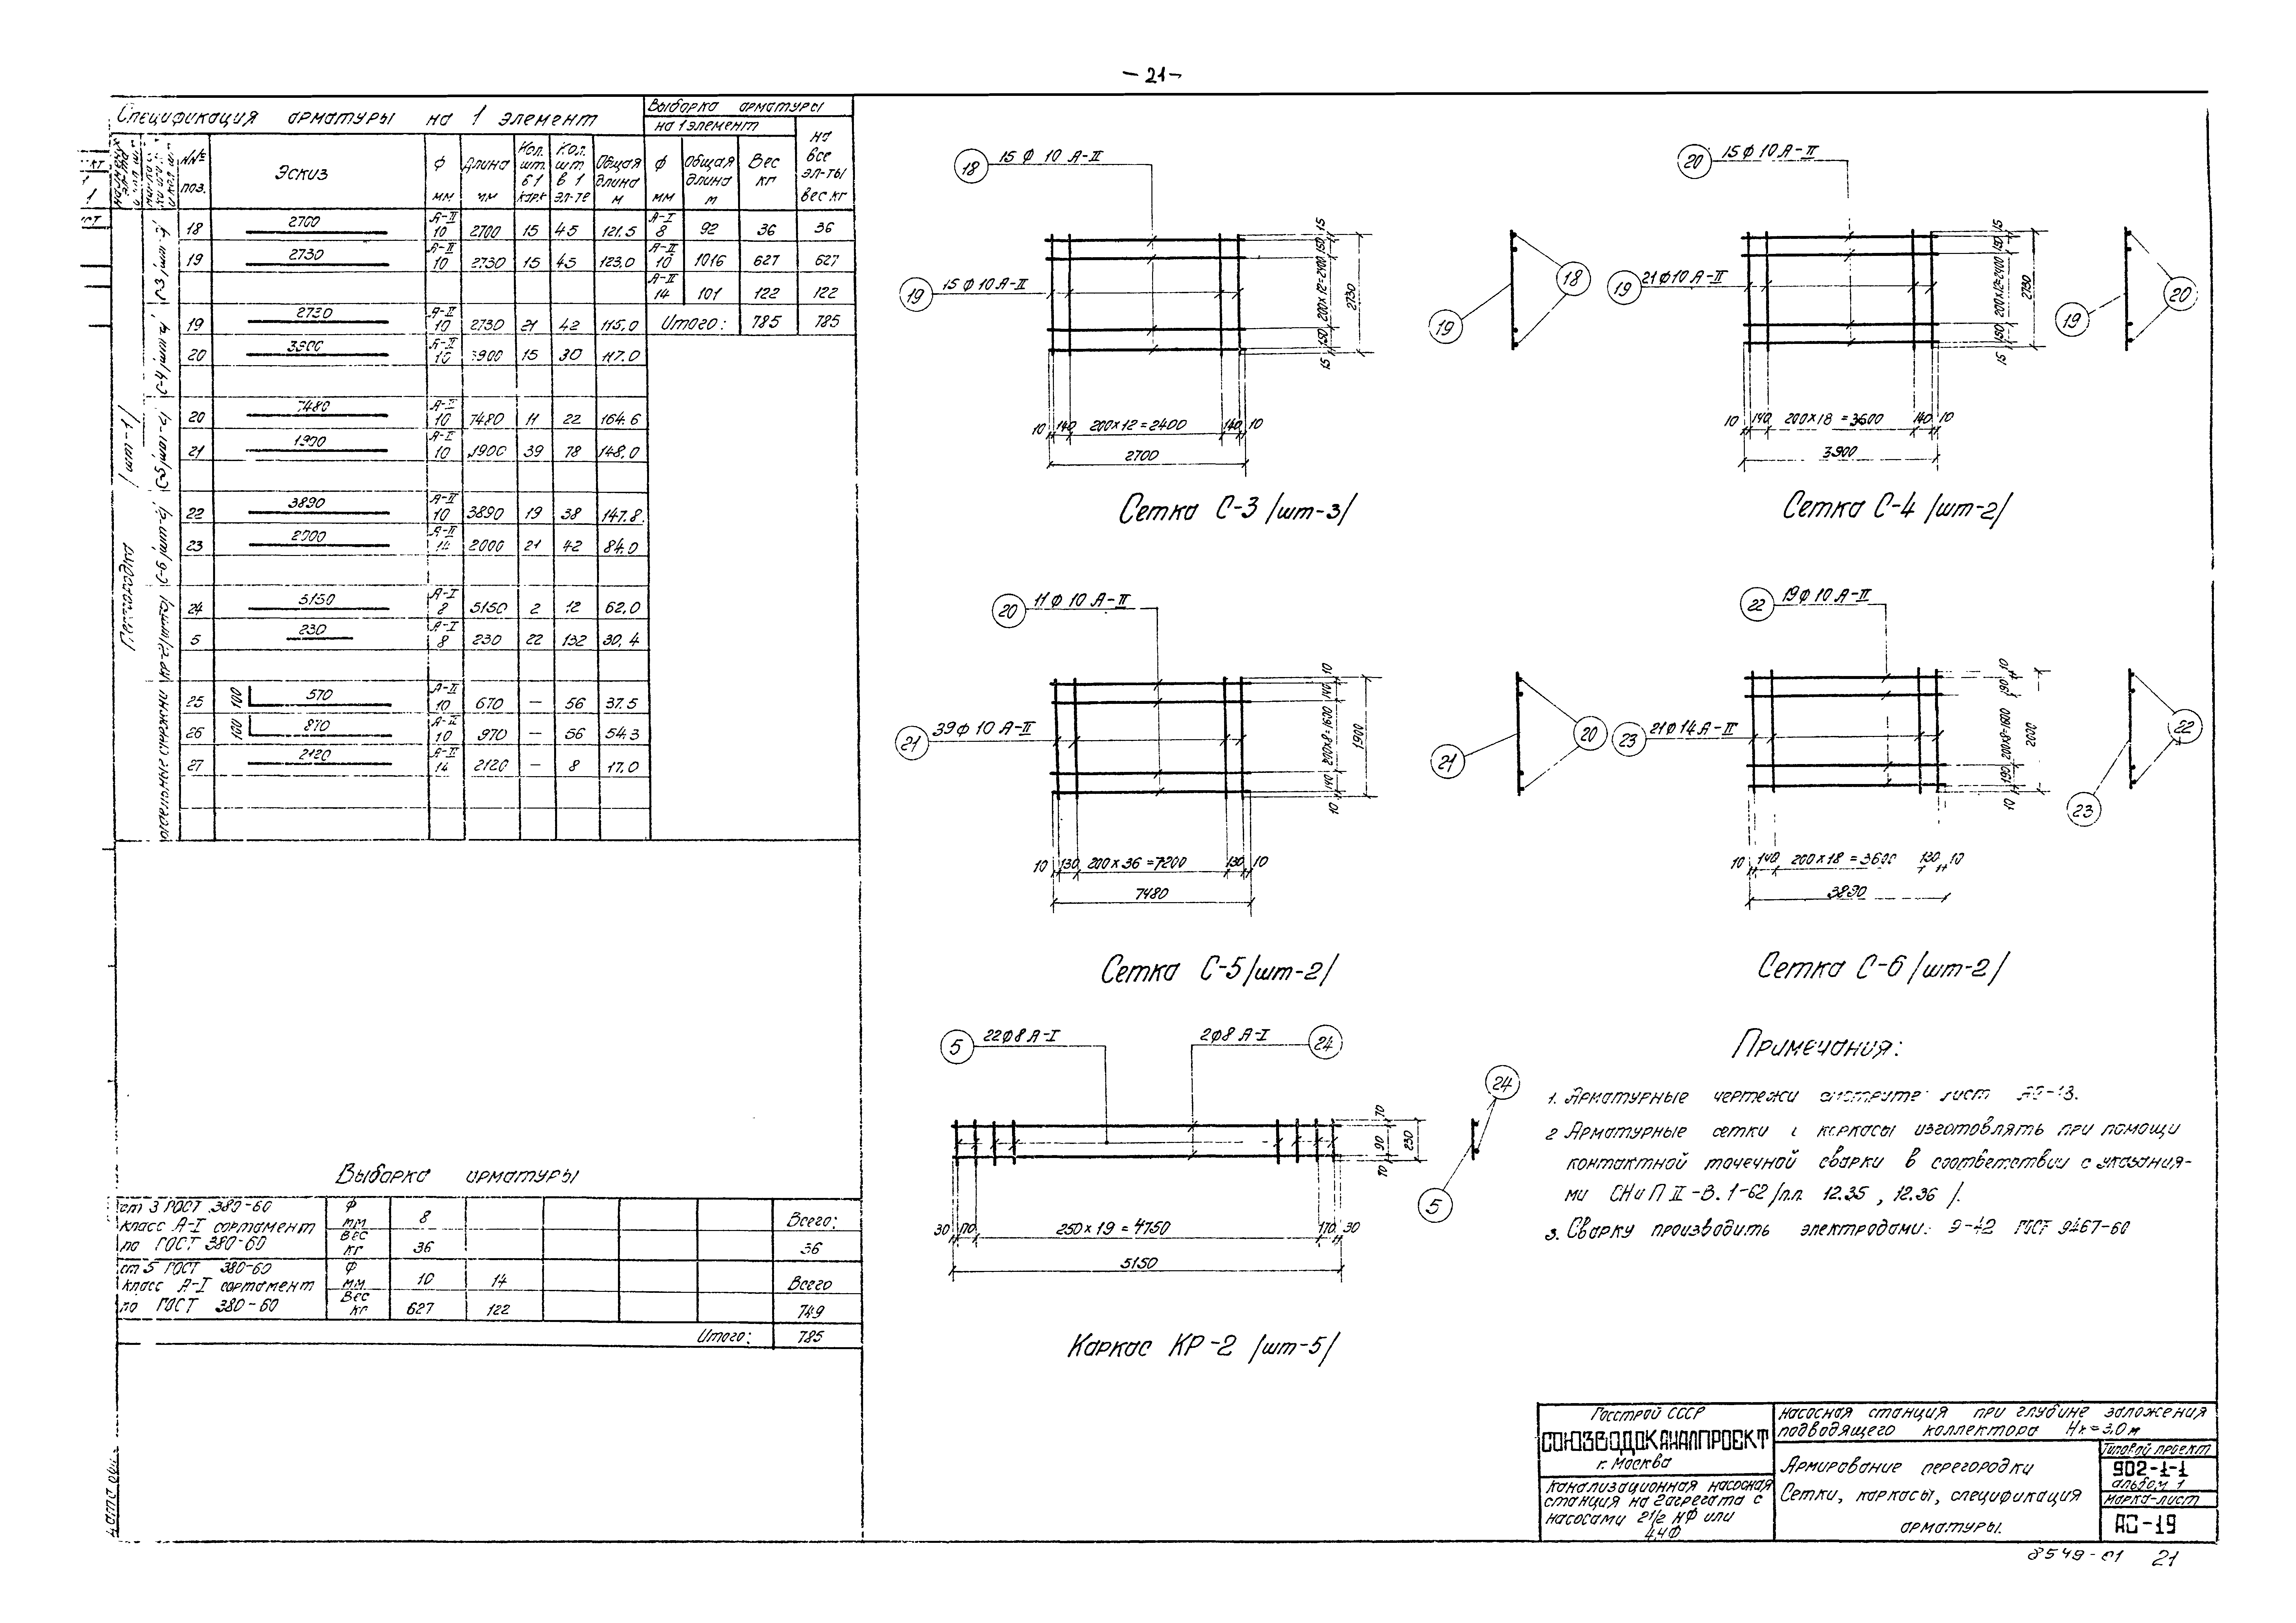 — 21 —
Спецификация арматуры на 1 элемент
Выборка арматуры
на 1 элемент
на все эл-ты вес кг
№№ поз.
Эскиз
Ф мм
Длина мм
Кол. шт. в 1 карк
Кол. шт. в 1 эл-те
Общая длина м
Ф мм
Общая длина м
Вес кг
18 2700 А-II 10 2700 15 45 121.5 А-I 8 92 36 36
19 2730 А-II 10 2730 15 45 123,0 А-II 10 1016 627 627
А-II 14 101 122 122
19 2730 А-II 10 2730 21 42 115,0 Итого: 785 785
20 3900 А-II 10 3900 15 30 117.0
20 7480 А-II 10 7480 11 22 164.6
21 1900 А-I 10 1900 39 78 148,0
22 3890 А-II 10 3890 19 38 147.8
23 2000 А-II 14 2000 21 42 84.0
24 5150 А-I 8 5150 2 12 62,0
5 230 А-I 8 230 22 132 30,4
25 100 570 А-II 10 670 — 56 37.5
26 100 870 А-II 10 970 — 56 54.3
27 2120 А-II 14 2120 — 8 17.0
Перегородка /шт-1/
Выборка арматуры
ст 3 ГОСТ 380-60
класс А-I сортамент
по ГОСТ 380-60
Ф мм 8 Всего:
Вес кг 36 36
ст 5 ГОСТ 380-60
класс А-I сортамент
по ГОСТ 380-60
Ф мм 10 14 Всего
Вес кг 627 122 749
Итого: 785
18 15 Ф 10 А-II
19 15 Ф 10 А-II
15 150 200х12=2400 150 15
2730
10 140 200х12=2400 140 10
2700
18
19
Сетка С-3 /шт-3/
20 15 Ф 10 А-II
19 21 Ф 10 А-II
15 150 200х12=2400 150 15
2730
10 140 200х18=3600 140 10
3900
20
19
Сетка С-4 /шт-2/
20 11 Ф 10 А-II
21 39 Ф 10 А-II
10 140 200х8=1600 140 10
1900
10 130 200х36=7200 130 10
7480
20
21
Сетка С-5 /шт-2/
22 19 Ф 10 А-II
23 21 Ф 14 А-II
10 190 200х8=1600 190 10
2000
10 140 200х18=3600 130 10
3890
22
23
Сетка С-6 /шт-2/
5 22 Ф 8 А-I
2 Ф 8 А-I 24
70 90 70
230
30 170 250х19=4750 170 30
5150
24
5
Каркас КР-2 /шт-5/
Примечания:
1. Арматурные чертежи смотрите лист
2 Арматурные сетки и каркасы изготовлять при помощи
контактной точечной сварки в соответствии с указания-
ми СНиП II-В.1-62 /п.п. 12.35, 12.36 /.
3. Сварку производить электродами: Э-42 ГОСТ 9467-60
Госстрой СССР
СОЮЗВОДОКАНАЛПРОЕКТ
г. Москва
Канализационная насосная
станция на 2 агрегата с
насосами 2 1/2 НФ или
4НФ
Насосная станция при глубине заложения
подводящего коллектора Нк=3.0 м
Армирование перегородки
Сетки, каркасы, спецификация
арматуры.
Типовой проект
902-1-1
альбом 1
марка-лист
АС-19
8549-01 21